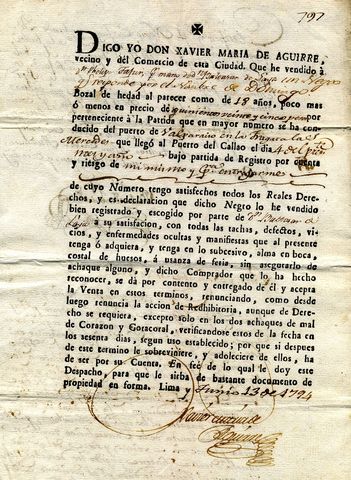 797
DIGO YO DON XAVIER MARIA DE AGUIRRE,
vecino y del Comercio de esta Ciudad. Que he vendido á
un Negro
Domingo
Bozal de hedad al parecer como de 18 años, poco mas
ó menos en precio de quinientos veinte y cinco pesos
perteneciente á la Partida que en mayor número se ha
conducido del puerto de Valparaiso en la Fragata la
Mercedes que llegó al Puerto del Callao el dia 4 del
mes y año bajo partida de Registro por cuenta
y riesgo de mi mismo y
de cuyo Número tengo satisfechos todos los Reales Dere-
chos, y es declaracion que dicho Negro lo he vendido
bien registrado y escogido por parte de
á su satisfaccion, con todas las tachas, defectos, vi-
cios, y enfermedades ocultas y manifiestas que al presente
tenga ó adquiera, y tenga en lo subcesivo, alma en boca,
costal de huesos, á usanza de feria, sin asegurarlo de
achaque alguno, y dicho Comprador que lo ha hecho
reconocer, se dá por contento y entregado de él y acepta
la Venta en estos terminos, renunciando, como desde
luego renuncia la accion de Redhibitoria, aunque de Dere-
cho se requiera, excepto solo en los dos achaques de mal
de Corazon y Gotacoral, verificandose estos de la fecha en
los sesenta dias, segun uso establecido; por que si despues
de este termino le sobreviniere, y adoleciere de ellos, ha
de ser por su Cuenta. En fee de lo qual le doy este
Despacho, para que le sirba de bastante documento de
propiedad en forma. Lima y Junio 13 de 1794
Xavier Maria de
Aguirre